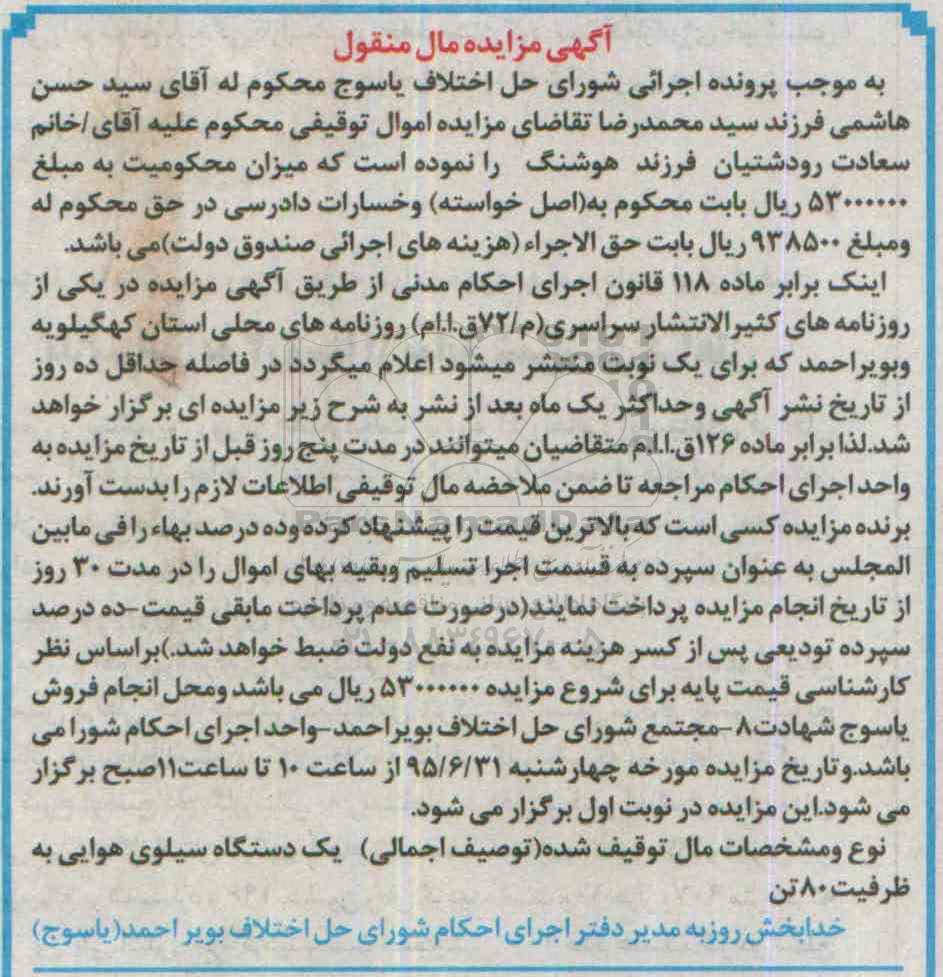 آگهی مزایده مال منقول
به موجب پرونده اجرائی شورای حل اختلاف یاسوج محکوم له آقای سید حسن
هاشمی فرزند سید محمدرضا تقاضای مزایده اموال توقیفی محکوم علیه آقای/خانم
سعادت رودشتیان فرزند هوشنگ را نموده است که میزان محکومیت به مبلغ
۵۳۰۰۰۰۰۰ ریال بابت محکوم به(اصل خواسته) وخسارات دادرسی در حق محکوم له
ومبلغ ۹۳۸۵۰۰ ریال بابت حق الاجراء (هزینه های اجرائی صندوق دولت)می باشد.
اینک برابر ماده ۱۱۸ قانون اجرای احکام مدنی از طریق آگهی مزایده در یکی از
روزنامه های کثیرالانتشار سراسری(م/۷۲ق.ا.ام) روزنامه های محلی استان کهگیلویه
وبویراحمد که برای یک نوبت منتشر میشود اعلام میگردد در فاصله حداقل ده روز
از تاریخ نشر آگهی وحداکثر یک ماه بعد از نشر به شرح زیر مزایده ای برگزار خواهد
شد.لذا برابر ماده ۱۲۶ق.ا.ا.م متقاضیان میتوانند در مدت پنج روز قبل از تاریخ مزایده به
واحد اجرای احکام مراجعه تا ضمن ملاحضه مال توقیفی اطلاعات لازم را بدست آورند.
برنده مزایده کسی است که بالاترین قیمت را پیشنهاد کرده وده درصد بهاء را فی مابین
المجلس به عنوان سپرده به قسمت اجرا تسلیم وبقیه بهای اموال را در مدت ۳۰ روز
از تاریخ انجام مزایده پرداخت نمایند(درصورت عدم پرداخت مابقی قیمت-ده درصد
سپرده تودیعی پس از کسر هزینه مزایده به نفع دولت ضبط خواهد شد.)براساس نظر
کارشناسی قیمت پایه برای شروع مزایده ۵۳۰۰۰۰۰۰ ریال می باشد ومحل انجام فروش
یاسوج شهادت۸-مجتمع شورای حل اختلاف بویراحمد-واحد اجرای احکام شورا می
باشد.وتاریخ مزایده مورخه چهارشنبه ۹۵/۶/۳۱ از ساعت ۱۰ تا ساعت۱۱صبح برگزار
می شود.این مزایده در نوبت اول برگزار می شود.
نوع ومشخصات مال توقیف شده(توصیف اجمالی) یک دستگاه سیلوی هوایی به
ظرفیت۸۰تن
خدابخش روزبه مدیر دفتر اجرای احکام شورای حل اختلاف بویر احمد(یاسوج)
ParsNamadData